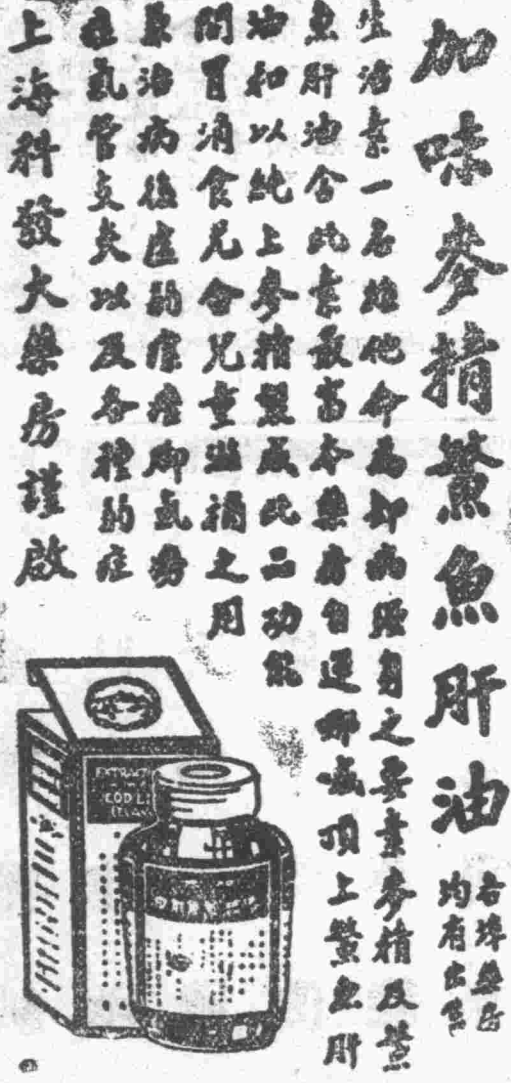 加味麥精鰵魚肝油
各埠藥房
均有出售
生活素一名維他命為卻病強身之要素麥精及鰵
魚肝油含此素最富本藥房自運挪威頂上鰵魚肝
油和以純上麥精製成此品功能
開胃消食兄合兒童滋補之用
兼治病後虛弱瘰癧脚氣癆
症氣管支炎以及各種弱症
上海科發大藥房謹啟
EXTRAKT
COD LI